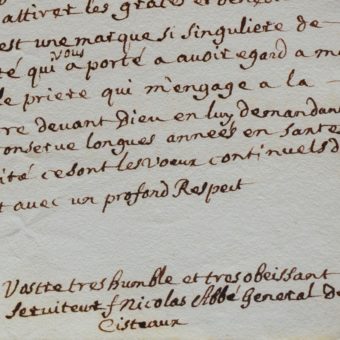 attirer les graces et benedi
est une marque si singuliere de
té qui vous a porté a avoir egard a m
le priere qui m'engage a la
re devant Dieu en luy demandan
conserve longues années en santé
ité ce sont les voeux continuels d
t avec un profond Respect
Vostre tres humble et tres obeissant
serviteur f Nicolas Abbé General de
Cisteaux